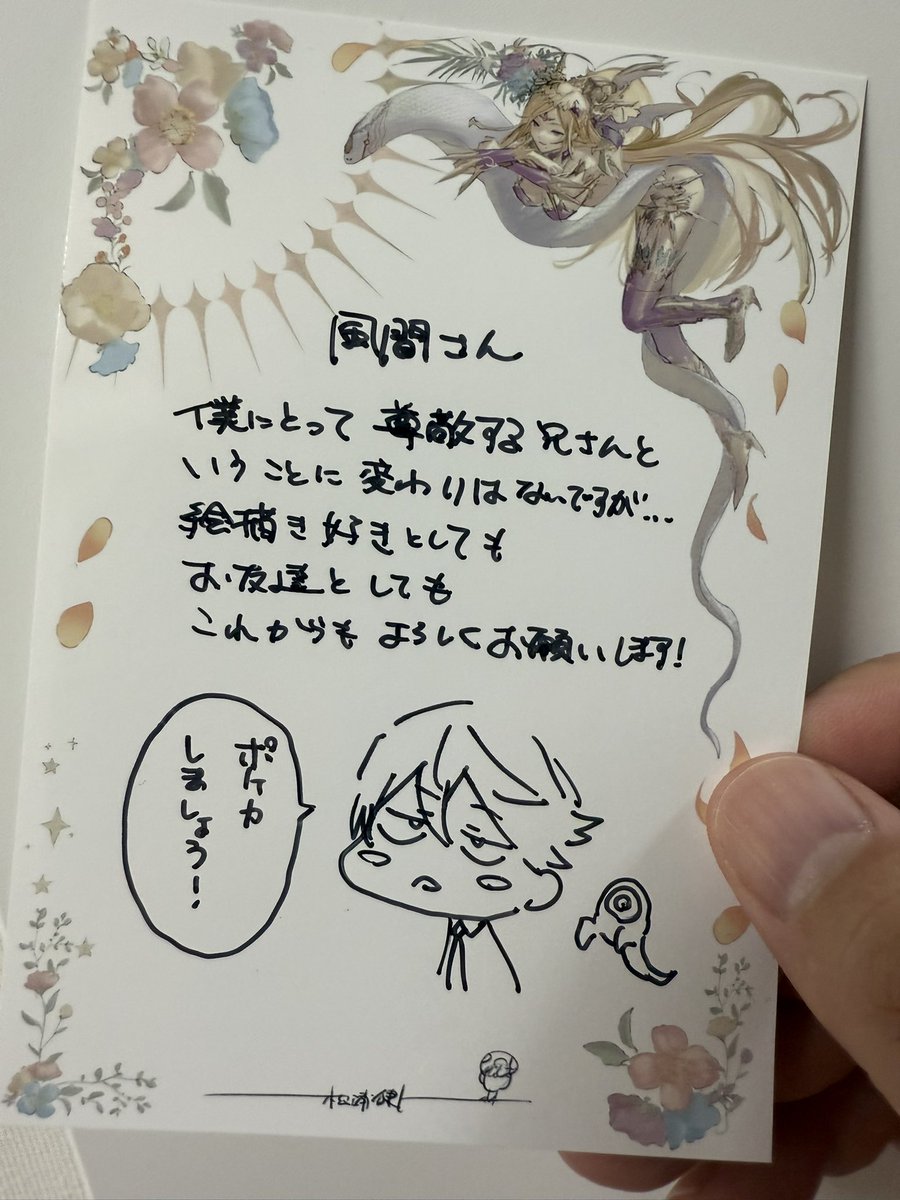 風間さん
僕にとって 尊敬する兄さんと
いうことに 変わりはないですが...
絵描き好きとしても
お友達としても
これからも よろしくお願いします!
ポケカ
しましょう!